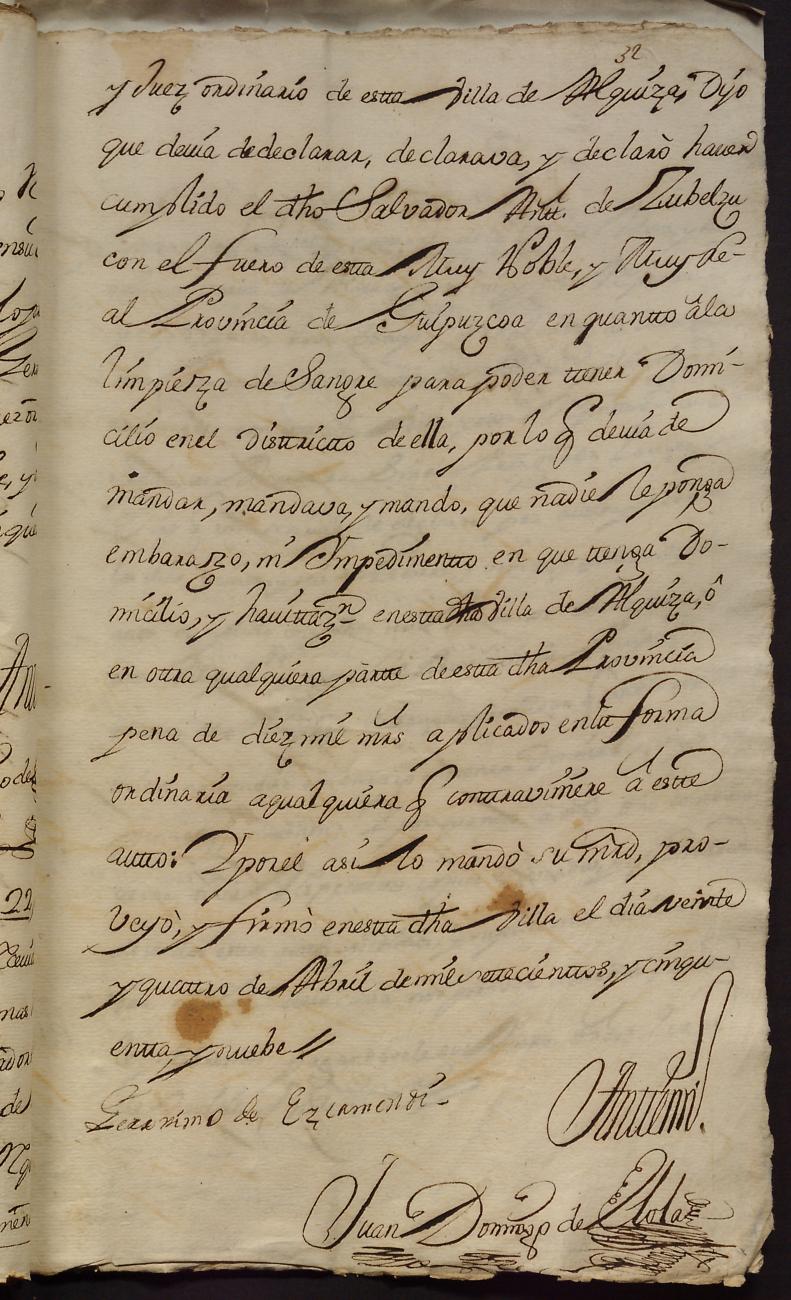 32
y Juez ordinario de estta Villa de Alquiza, Dijo
que devia de declarar, declarava, y declarò haver
cumplido el dho Salvador Anttº. de Zubelzu
con el fuero de estta Muy Noble, y Muy Le-
al Provincia de Guipuzcoa en quantto âla
limpieza de Sangre para poder ttener Domi-
cilio enel disttrictto de ella, por lo q devia de
mandar, mandava, y mando, que nadie le ponga
embarazo, ni Impedimentto en que ttenga Do-
micilio, y havittazn enestta dha Villa de Alquiza, ô
en ottra qualquiera partte de estta dha Provincia
pena de diez mil mrs aplicados enla forma
ordinaria aqualquiera q conttraviniere â estte
autto: Y porel asi lo mandò su mrd, pro-
veyò, y firmò enestta dha Villa el dia veintte
y quattro de Abril de mil settecienttos, y cinqu-
entta y nuebe //
Geronimo de Ezcamendi
Anttemi.
Juan Domingo de Elola
22